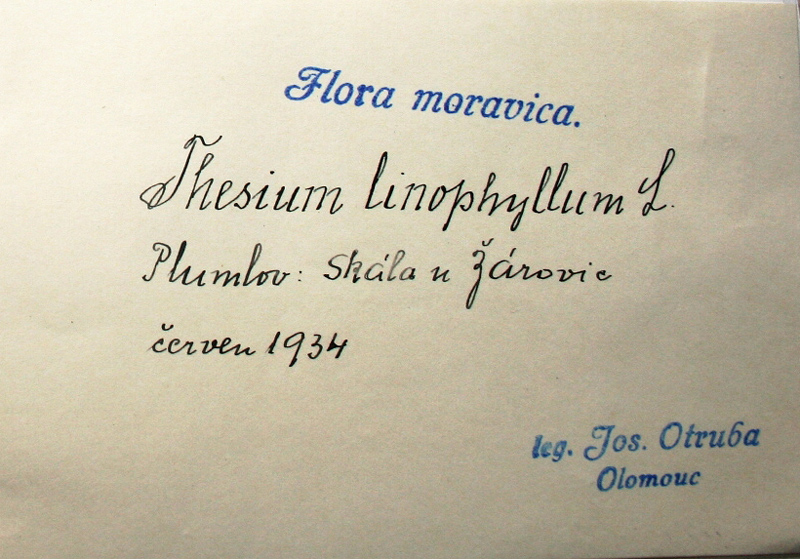 Flora moravica.
Thesium linophyllum L.
Plumlov: Skála u Žárovic
červen 1934
leg. Jos. Otruba
Olomouc